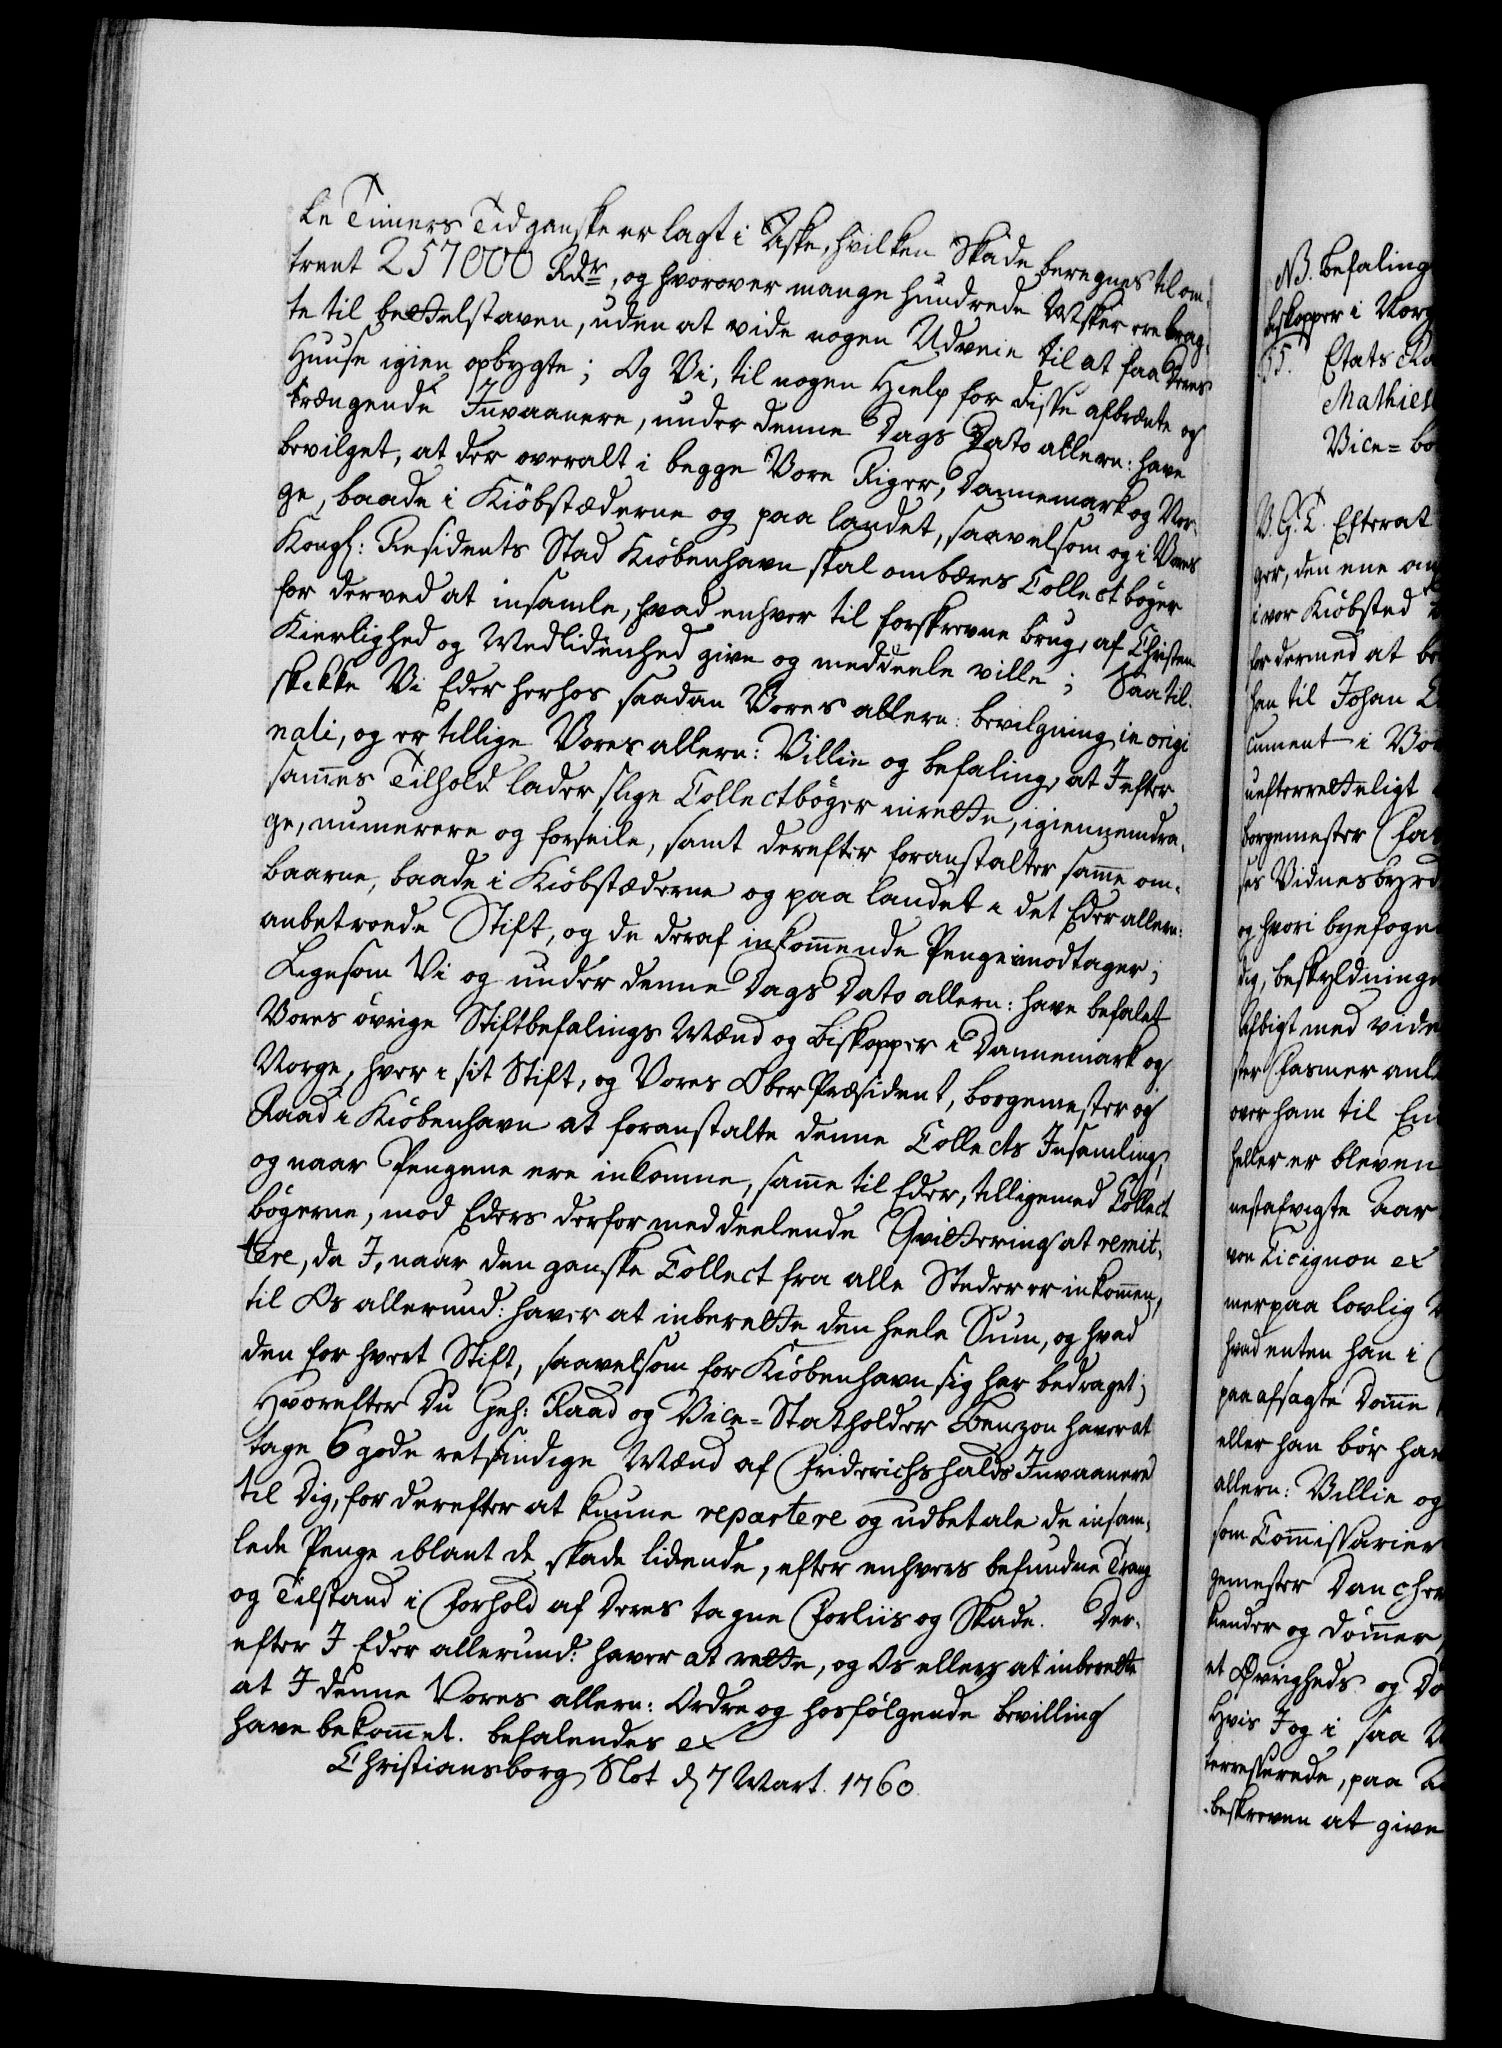 le Timers Tid ganske er lagt i Aske, hvilken Skade beregnes til om-
trent 257000 Rdr, og hvorover mange hundrede Mskr ere brag-
te til bettelstaven, uden at vide nogen Udveie til at faa deres
Huuse igien opbygte; Og Vi, til nogen Hielp for disse afbrændte og
trængende Invaanere, under denne Dags Dato allern: have
bevilget, at der overalt i begge Vore Riger, Dannemark og Nor-
ge, baade i Kiöbstæderne og paa landet, saavelsom og i Vores
Kongl: Residents Stad Kiöbenhavn skal ombæres Collect bøger
for derved at insamle, hvad enhver til forskrevne brug, af Christen
Kierlighed og Medlidenhed give og meddeele ville; Saa til-
skikke Vi Eder herhos saadan Vores allern: bevilgning in origi
nali, og er tillige Vores allern: Villie og befaling, at I efter
sammes Tilhold lader slige Collectbøger inrette, igiennemdra-
ge, numerere og forseile, samt derefter foranstalter samme om-
baarne, baade i Kiöbstæderne og paa landet i det Eder allern:
anbetroede Stift, og de deraf inkommende Penge imodtager;
Ligesom Vi og under denne Dags Dato allern: have befalet
Vores övrige Stiftbefalings Mænd og Biskopper i Dannemark og
Norge, hver i sit Stift, og Vores Ober Præsident, borgemester og
Raad i Kiöbenhavn at foranstalte denne Collects Insamling,
og naar Pengene ere inkomne, samme til Eder, tilligemed Collect
bögerne, mod Eders derfor meddeelende Qvittering at remit-
tere, da I, naar den ganske Collect fra alle Steder er inkommen,
til Os allerund: haver at inberette den heele Sum, og hvad
den for hvert Stift, saavelsom for Kiöbenhavn sig har bedraget;
Hvorefter Du Geh: Raad og Vice-Statholder Benzon haver at
tage 6 gode retsindige Mænd af Friderichshalds Invaanere
til Dig, for derefter at kunne repartere og udbetale de insam-
lede Penge iblant de skade lidende, efter enhvers befundne Trang
og Tilstand i Forhold af deres tagne Forliis og Skade. Der-
efter I Eder allerund: haver at rette, og Os ellers at inberette
at I denne Vores allern: Ordre og hosfölgende bevilling
have bekommet. befalendes ex
Christiansborg Slot d 7 Mart. 1760.
NB. befaling
biskopper i Norg
55. Etats Ra
Mathies
Vice-bo
V. G. T. Efterat
ger, den ene an
i vor Kiöbsted
for dermed at be
han til Johan
cument i Vor
uefterretteligt
borgemester Fas
ses Vidnesbyrd
og hvori byefoge
dig, beskyldninge
Afbigt med vide
ster Fasmer anl
over ham til En
heller er bleven
nestafvigte Aar
von Cicignon ex
mer paa lovlig
hvad enten han i
paa afsagte Domme
eller han bör hav
allern: Villie og
som Commissarier
gemester Dancher
kiender og dömmer,
et Övrigheds og Do
Hvis I og i saa
terressserede, paa
beskreven at give